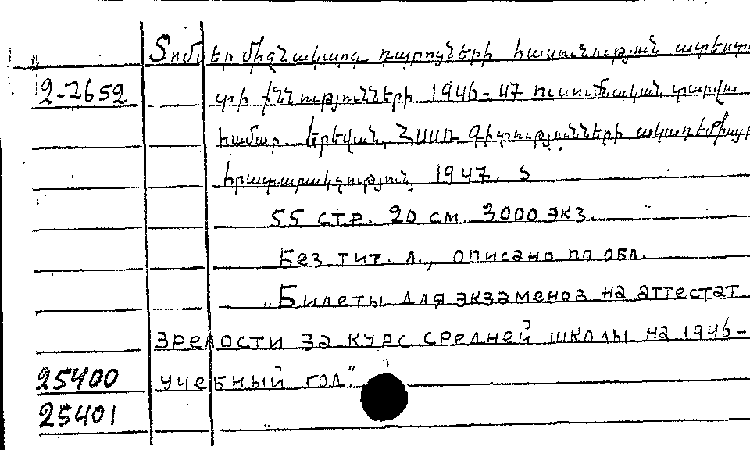 Տոմսեր միջնակարգ դպրոցների հասունության ատեստա
2-2652
տի քննությունների 1946-47 ուսումնական տարվա
համար. Երեվան, ՀՍՍՌ Գիտությունների ակադեմիայի
հրատարակչություն, 1947.
55 стр. 20 см. 3000 экз.
Без тит. л., описано по обл.
„Билеты для экзаменов на аттестат
зрелости за курс средней школы на 1946-
25400 учебный год"
25401